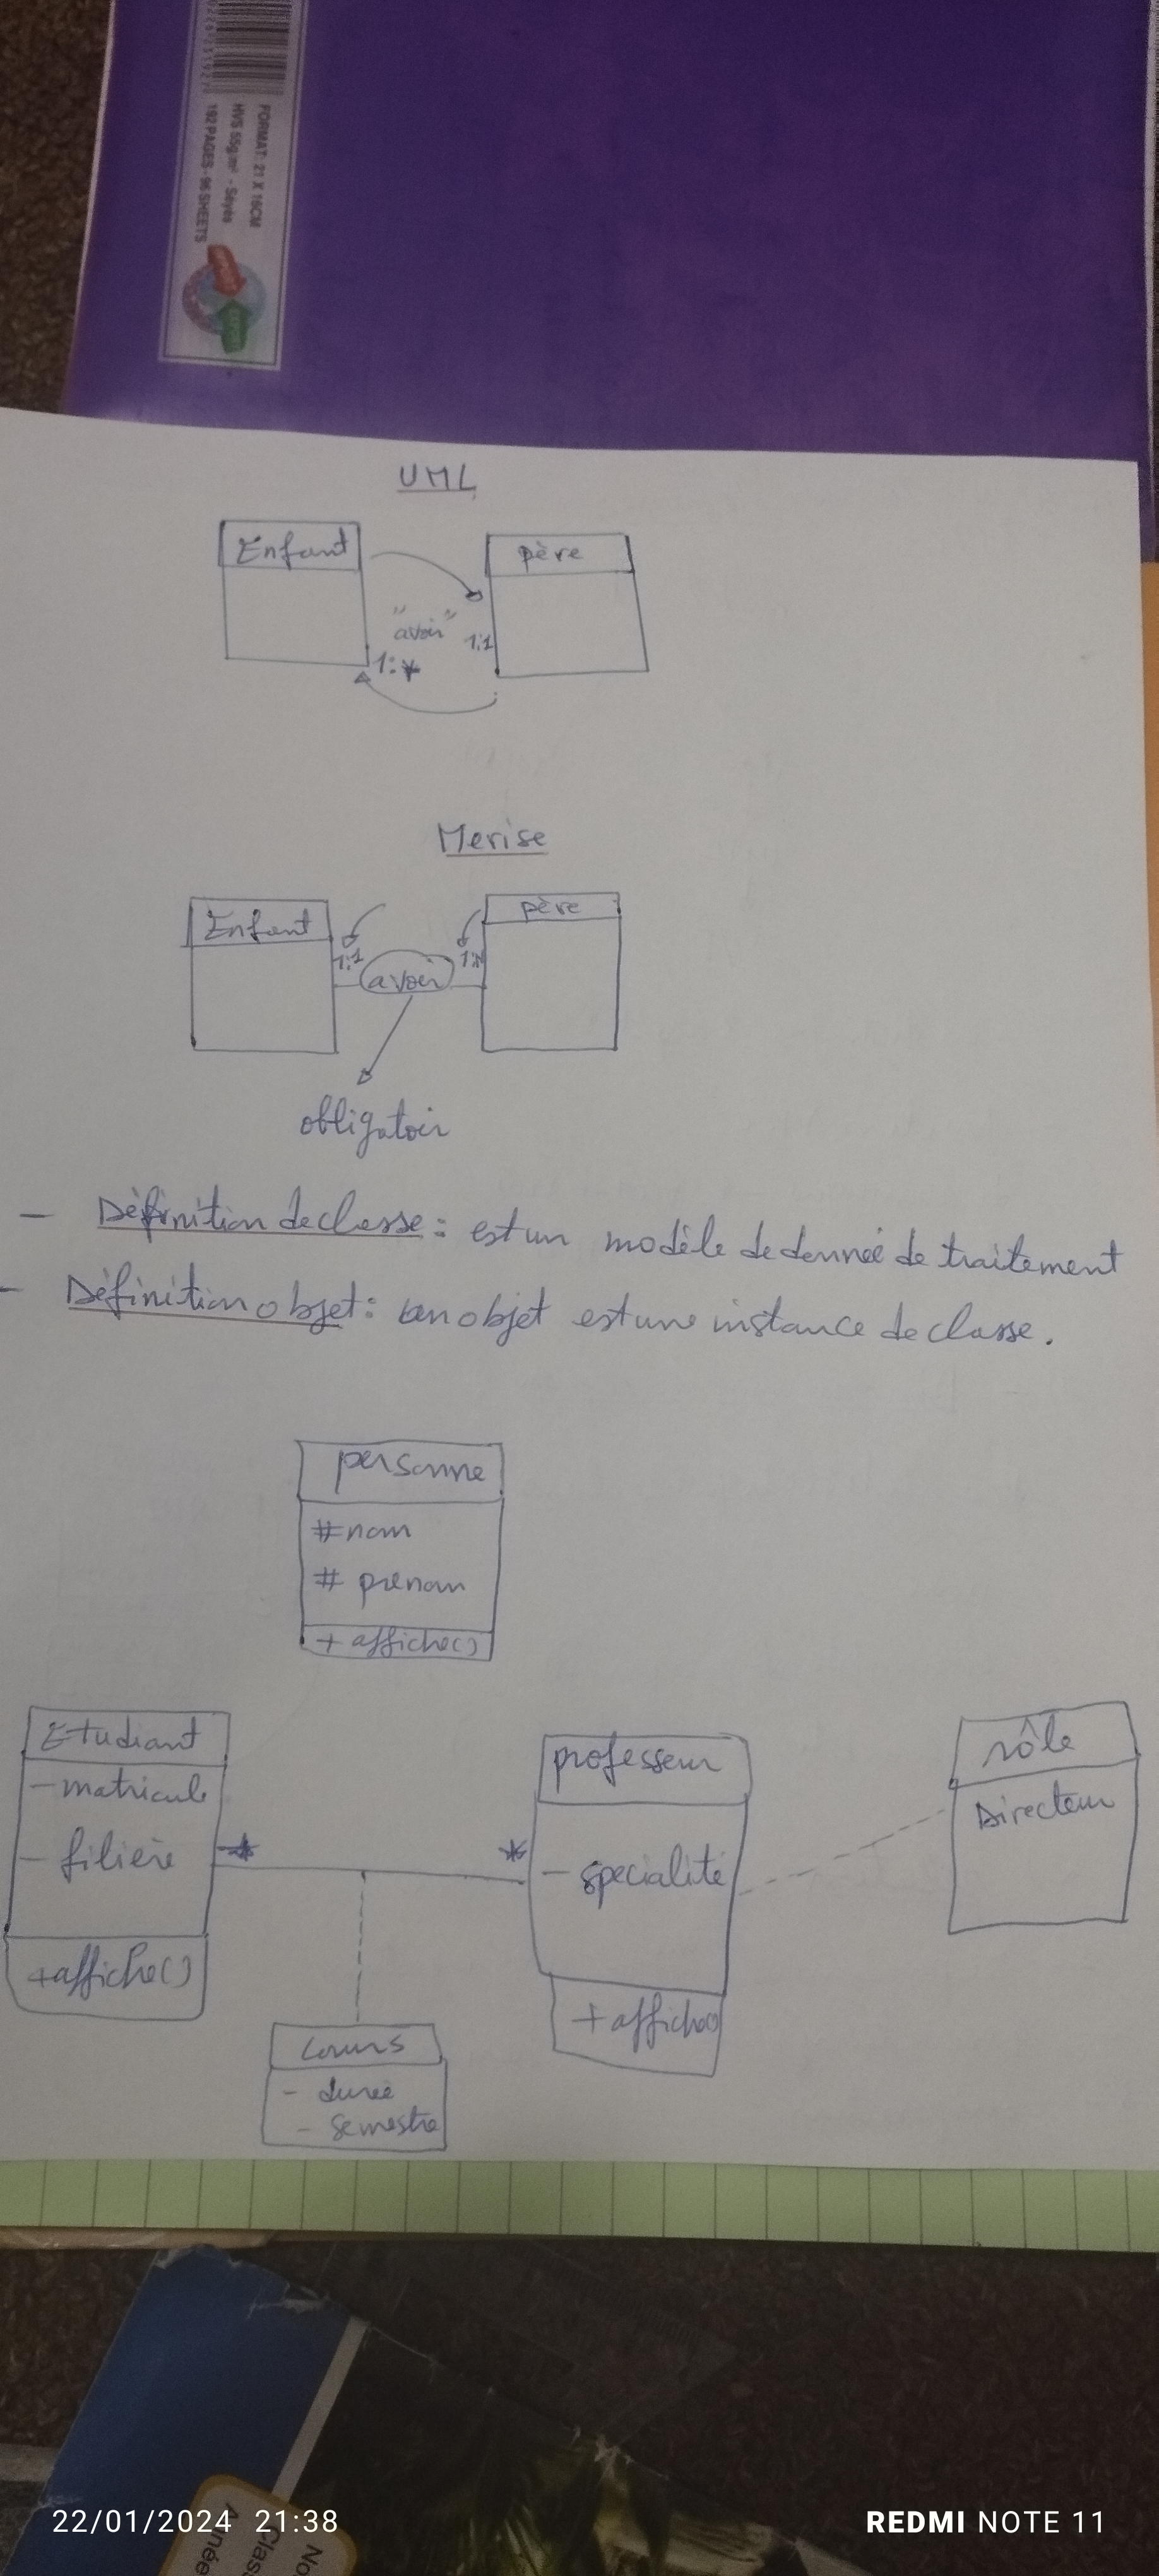 FORMAT: 21 X 16CM
HVS 55g.m² - Séyès
192 PAGES - 96 SHEETS
UML
Enfant
père
"avoir"
1:1
1:*
Merise
Enfant
père
1:1
avoir
1:N
obligatoir
- Définition de classe : est un modèle de donnée de traitement
- Définition objet : un objet est une instance de classe.
personne
# nom
# prenom
+ affiche()
Etudiant
- matricule
- filière
+ affiche()
*
*
professeur
- specialité
+ affiche()
rôle
Directeur
cours
- durée
- semestre
22/01/2024 21:38
REDMI NOTE 11